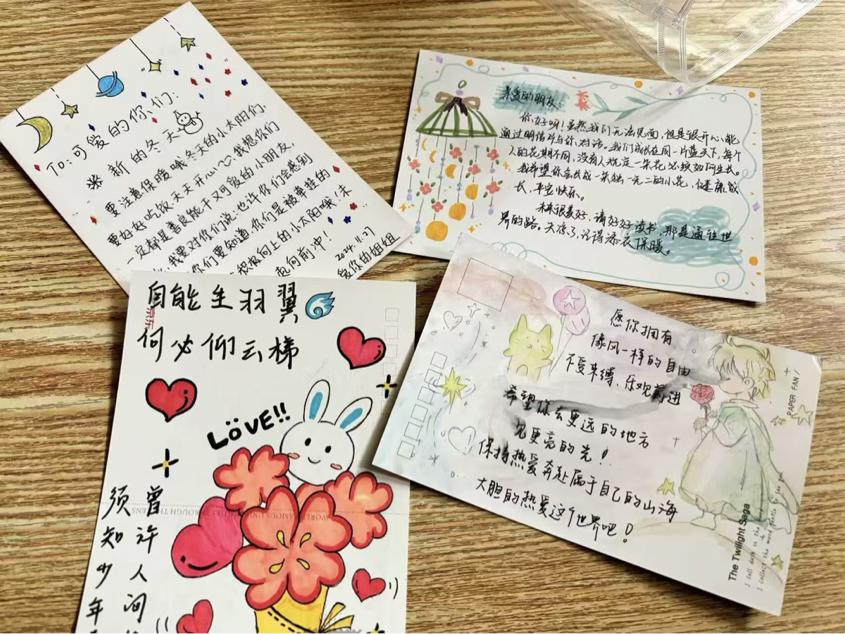 To:可爱的你们:
新的冬天
要注意保暖哦,冬天的小太阳们,
要好好吃饭,天天开心,我想你们
一定都是善良能干又可爱的小朋友,
我要对你们说,也许你们会感到
你们要知道,你们是最幸棒的
积极向上的小太阳哦!未
起向前冲!
2024.11.27
爱你的姐姐
亲爱的朋友:
你好呀!虽然我们无法见面,但是很开心,能
通过明信片与你对话。我们成长在同一片蓝天下,每个
人的花期不同,没有人规定一朵花必须如何生长。
我希望你能长成一朵独一无二的小花,健康成
长,平安快乐。
未来很美好,请好好读书,那是通往世
界的路。天凉了,记得添衣保暖。
自能生羽翼
何必仰云梯
LOVE!!
曾许人间
须知少年
愿你拥有
像风一样的自由
不受束缚、乐观前进
希望你去更远的地方
见更亮的光!
保持热爱奔赴属于自己的山海
大胆的热爱这个世界吧!
PAPER FAN /
The Twilight Saga